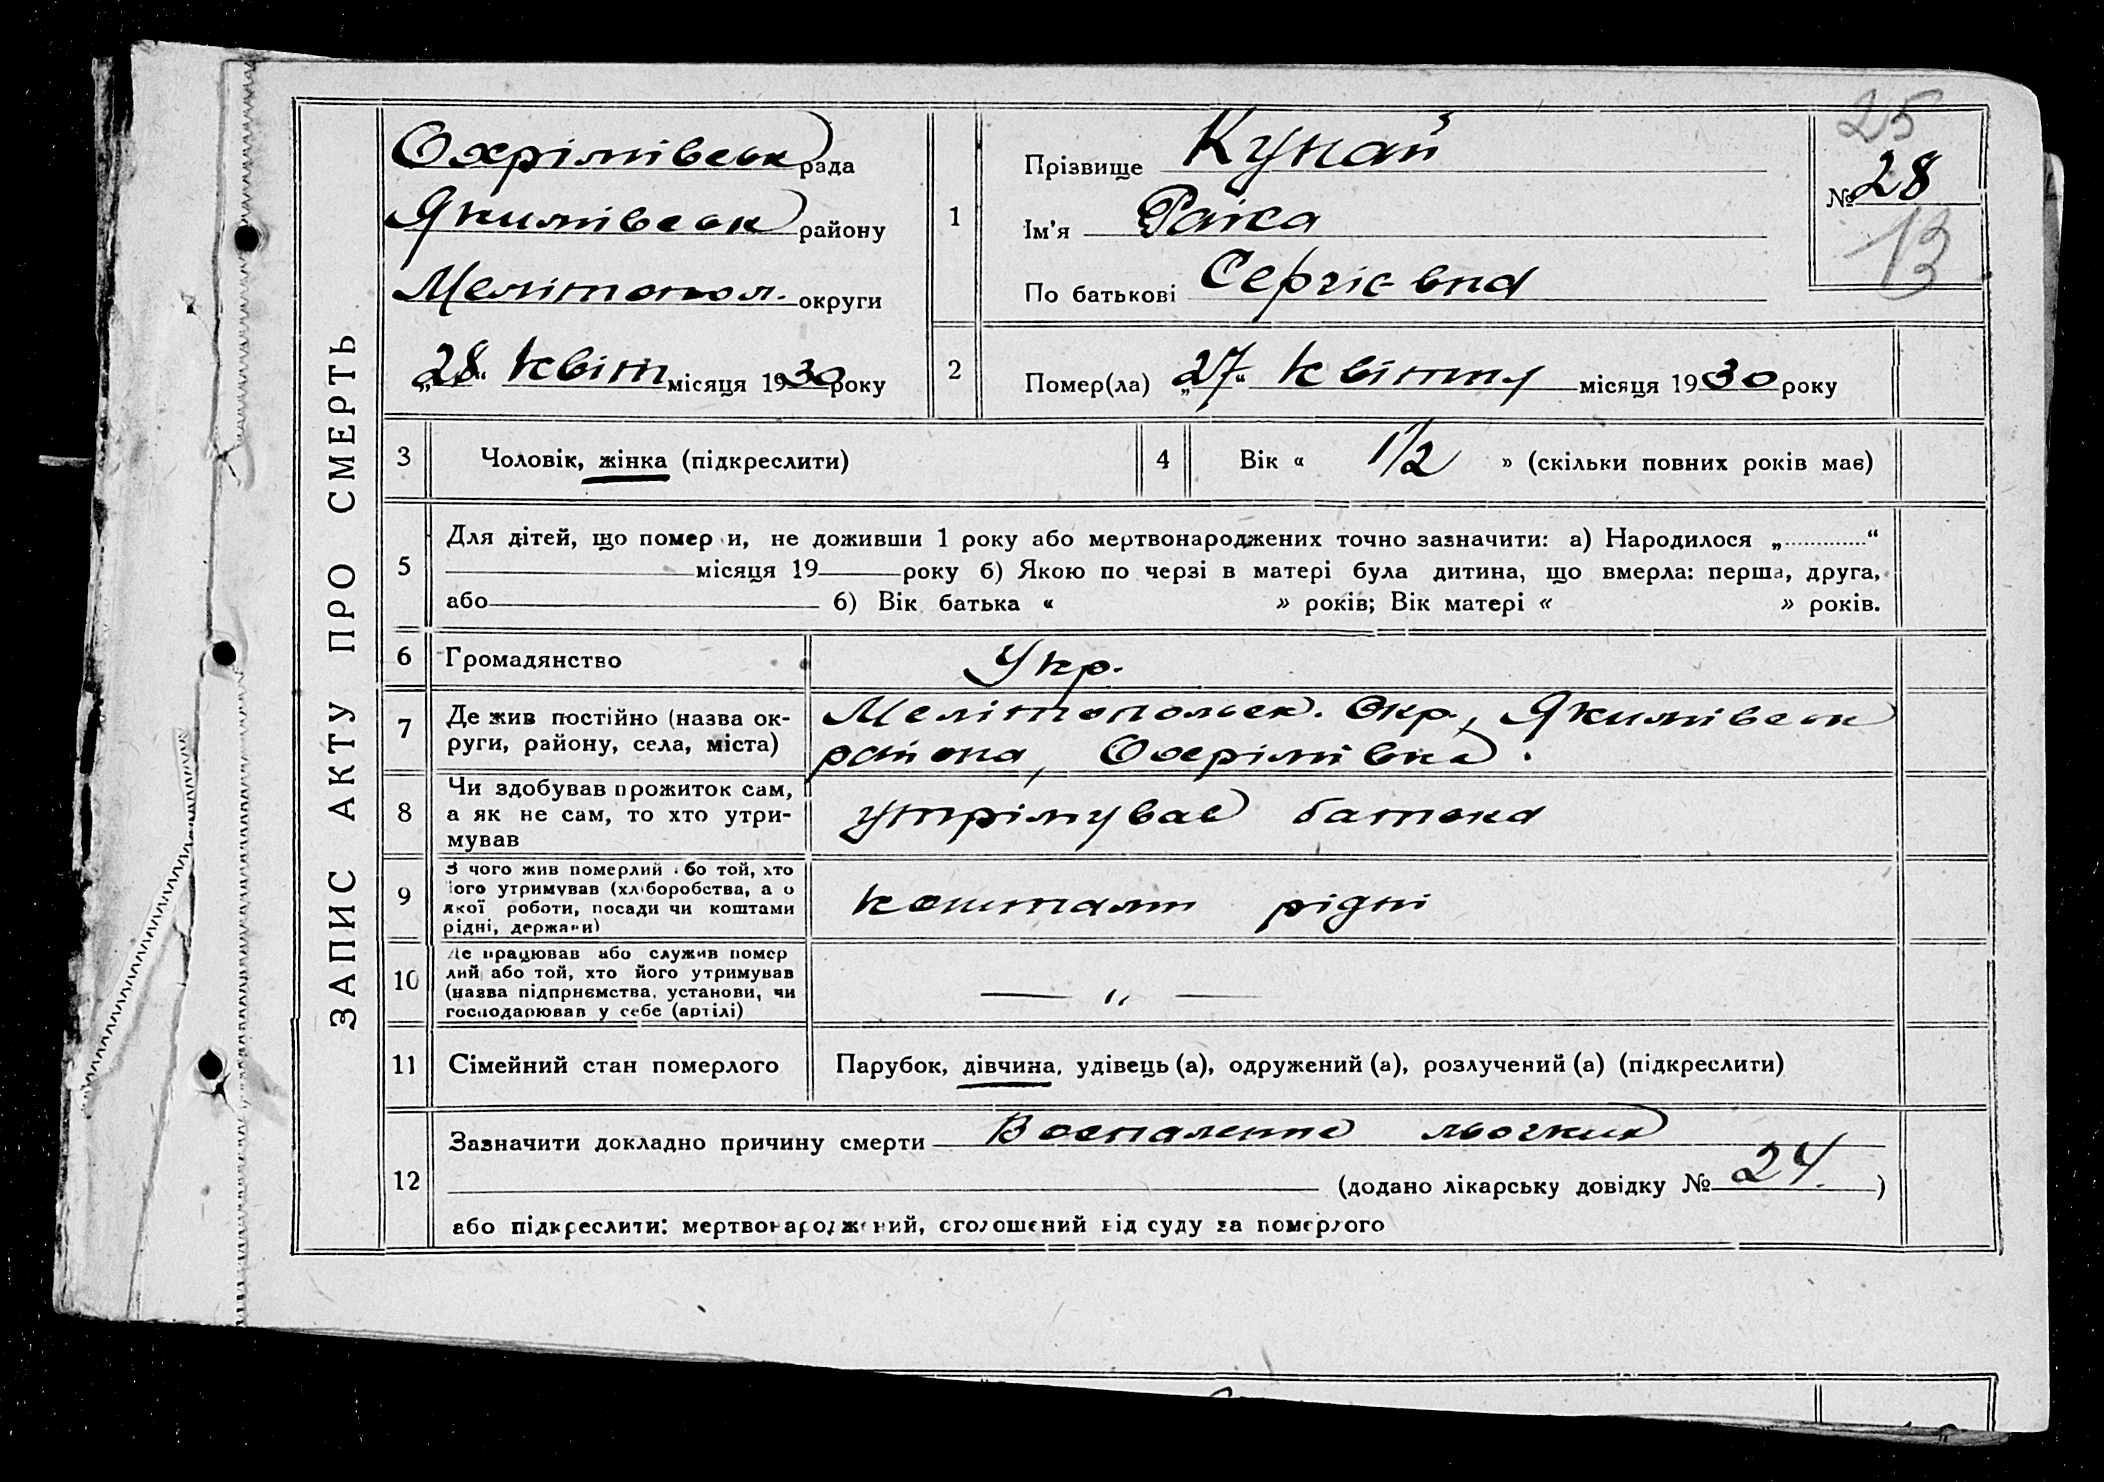 ЗАПИС АКТУ ПРО СМЕРТЬ
Охрімівськ рада
Якимівськ району
Мелітопол. округи
„28“ квіт місяця 1930 року
1
Прізвище Кунай
Ім'я Раїса
По батькові Сергієвна
25
№ 28
13
2
Помер(ла) „27“ квітня місяця 1930 року
3
Чоловік, жінка (підкреслити)
4
Вік « 1½ » (скільки повних років має)
5
Для дітей, що помер и, не доживши 1 року або мертвонароджених точно зазначити: а) Народилося „ “
місяця 19 року б) Якою по черзі в матері була дитина, що вмерла: перша, друга,
або б) Вік батька « » років; Вік матері « » років.
6
Громадянство
Укр.
7
Де жив постійно (назва ок-
руги, району, села, міста)
Мелітопольськ. Окр., Якимівськ
района, Охрімівка.
8
Чи здобував прожиток сам,
а як не сам, то хто утри-
мував
утрімував батька
9
З чого жив померлий або той, хто
його утримував (хліборобства, а о
якої роботи, посади чи коштами
рідні, держави)
коштами рідні
10
Де працював або служив помер
лий або той, хто його утримував
(назва підприємства, установи, чи
господарював у себе (артілі)
— „ —
11
Сімейний стан померлого
Парубок, дівчина, удівець (а), одружений (а), розлучений (а) (підкреслити)
12
Зазначити докладно причину смерти Воспаление льогких
(додано лікарську довідку № 24.)
або підкреслити: мертвонароджений, оголошений від суду за померлого